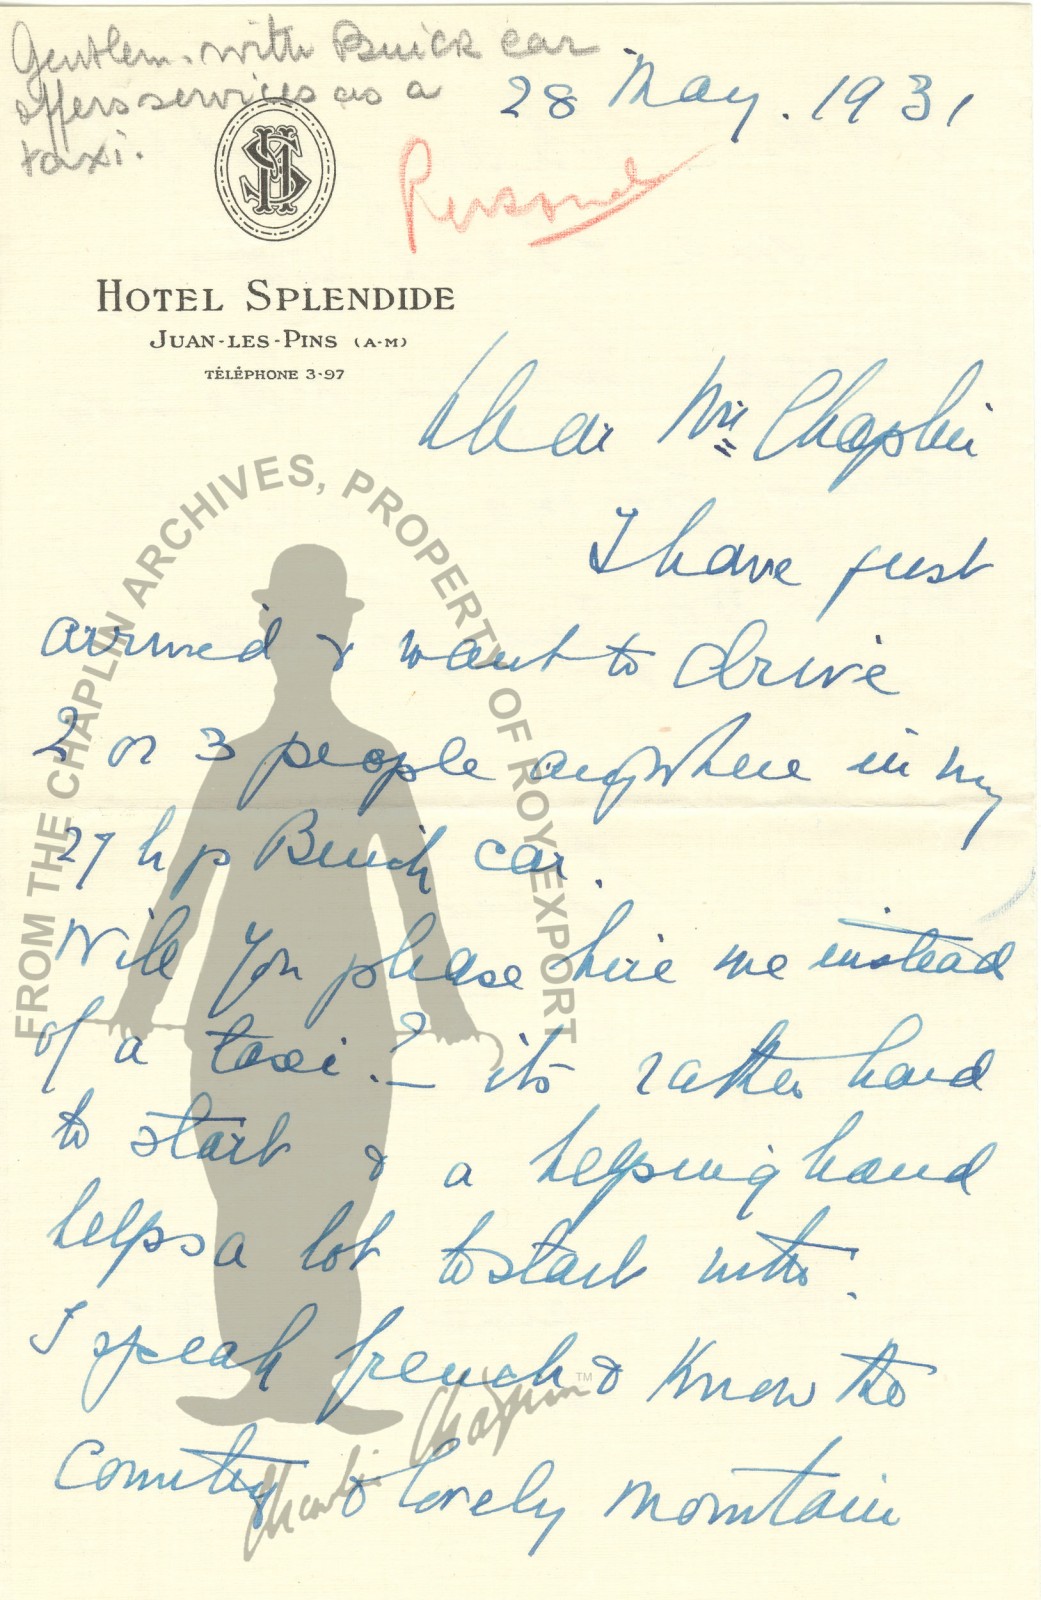 Gentlem. with Buick car
offers services as a
taxi.
28 May. 1931
Personal
HOTEL SPLENDIDE
JUAN-LES-PINS (A-M)
TÉLÉPHONE 3-97
Dear Mr Chaplin
I have just
arrived & want to drive
2 or 3 people anywhere in my
27 hp Buick car.
Will you please hire me instead
of a taxi? – its rather hard
to start & a helping hand
helps a lot to start with.
I speak french & know the
country & lovely mountain
FROM THE CHAPLIN ARCHIVES, PROPERTY OF ROY EXPORT
Charlie Chaplin ™